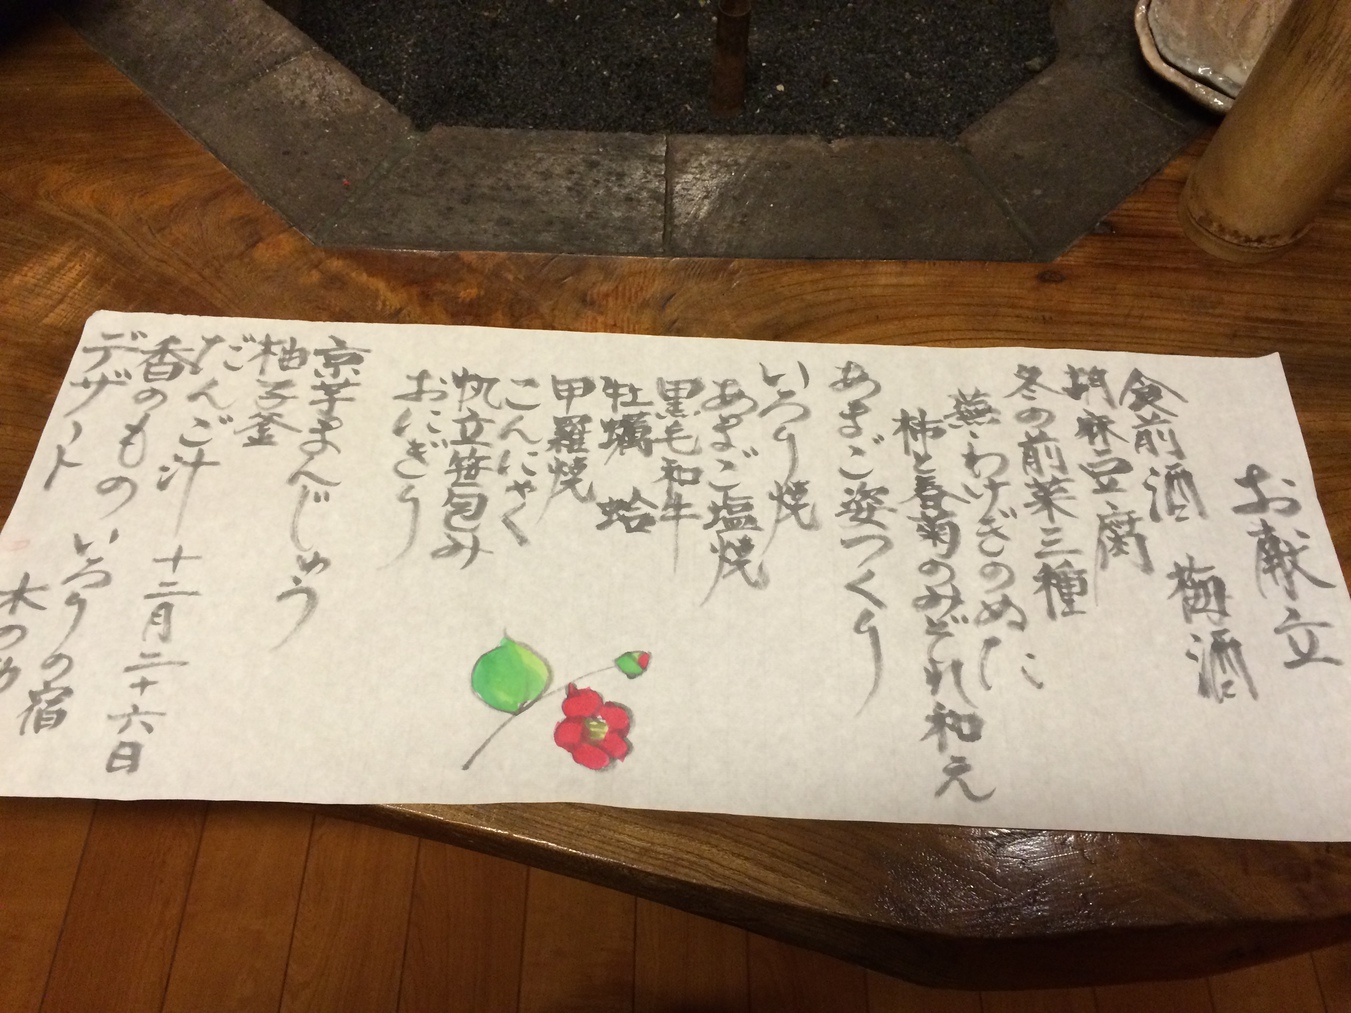 お献立
食前酒 梅酒
胡麻豆腐
冬の前菜三種
蕪・わけぎのぬた
柿と春菊のみぞれ和え
あまご姿つくり
いろり焼
あまご塩焼
黒毛和牛
牡蠣 蛤
甲羅焼
こんにゃく
帆立笹包み
おにぎり
京芋まんじゅう
柚子釜
だご
だんご汁
香のもの
デザート
十二月二十六日
いろりの宿